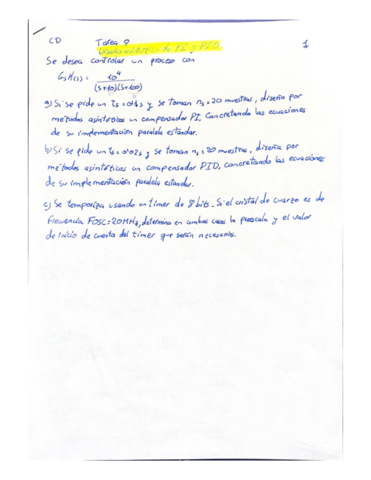 CD Tarea 8 1
Diseño asintótico de PI y PID
Se desea controlar un proceso con
G₃H(s) = 10⁴ / (s+10)(s+100)
a) Si se pide un ts = 0'4s y se toman ns = 20 muestras, diseña por
métodos asintóticos un compensador PI, concretando las ecuaciones
de su implementación paralela estándar.
b) Si se pide un ts = 0'02s y se toman ns = 20 muestras, diseña por
métodos asintóticos un compensador PID, concretando las ecuaciones
de su implementación paralela estandar.
c) Se temporiza usando un timer de 8 bits. Si el cristal de cuarzo es de
frecuencia FOSC = 20MHz, determina en ambos casos la preescala y el valor
de inicio de cuenta del timer que serán necesarios.